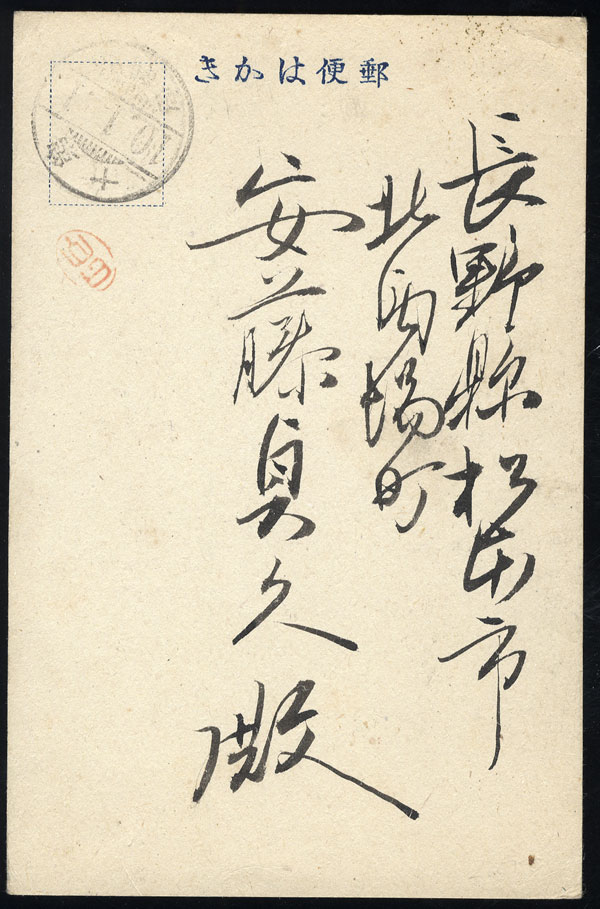 郵便はかき
長野縣松本市
北馬場町
安藤貞久殿
10.1.1